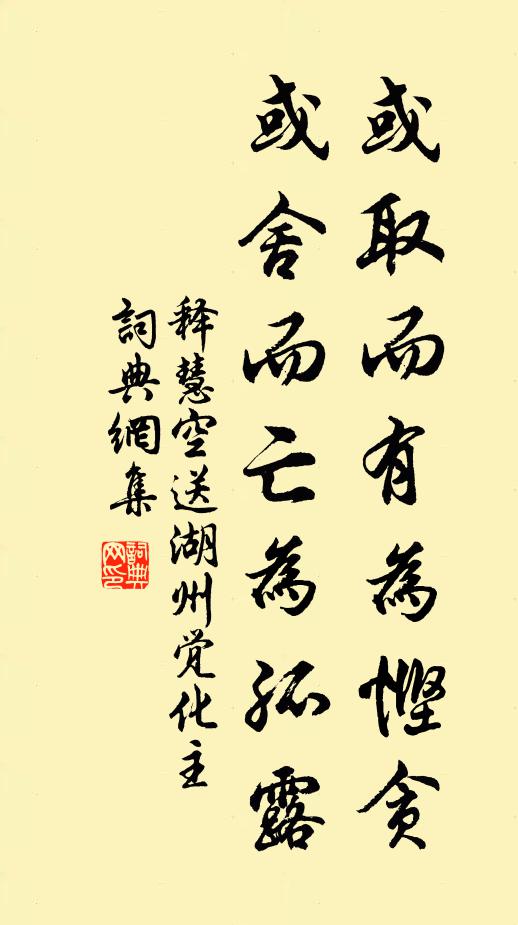 或取而有為慳貪
或舍而亡為孤露
释慧空送湖州觉化主
詞典網集
詞典网印